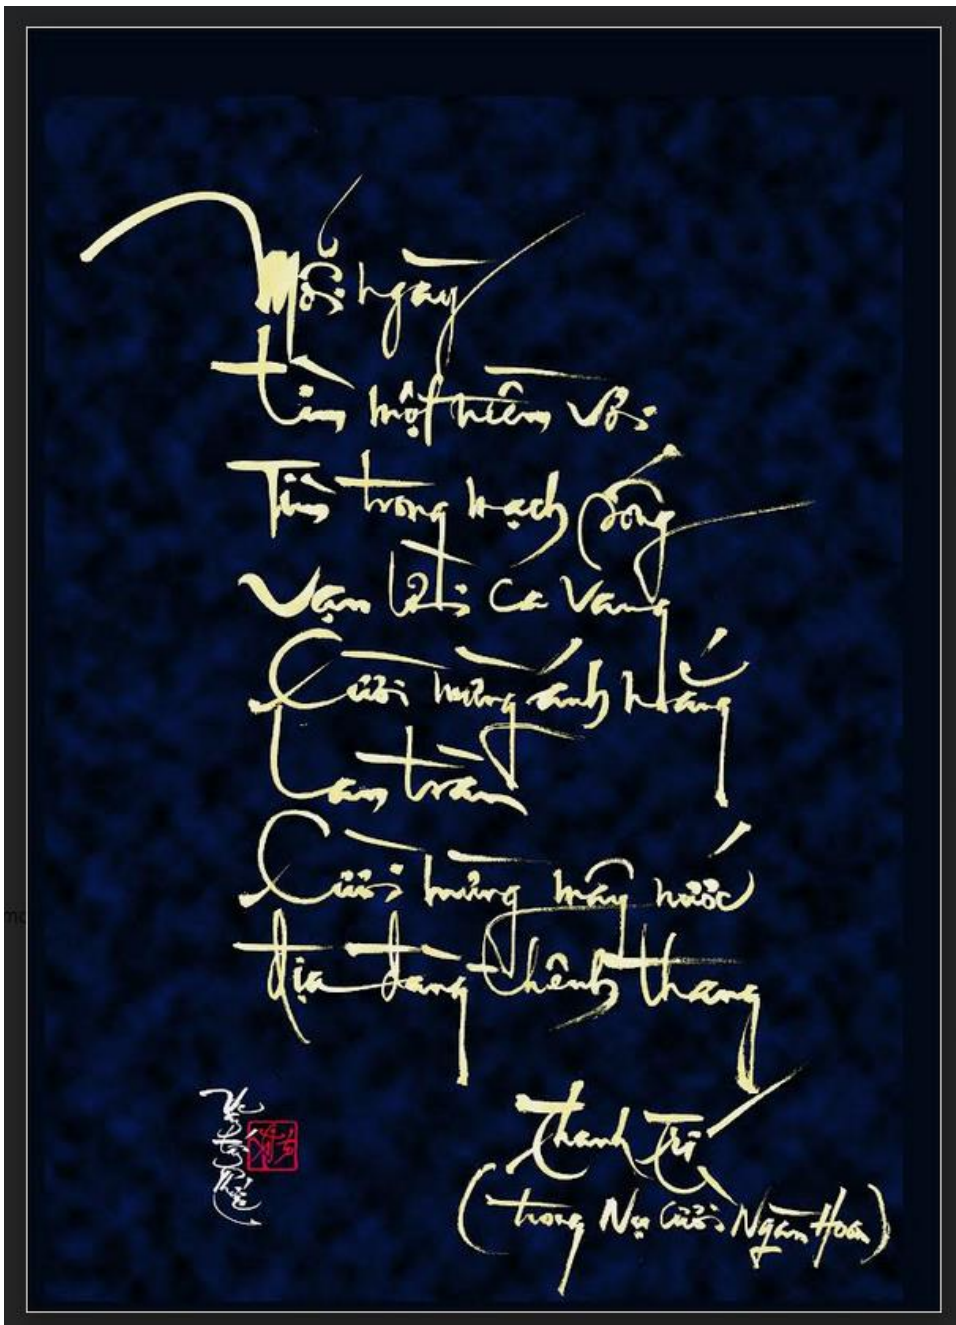 Mỗi ngày
tìm một niềm vui
Tìm trong mạch sống
Vạn lời ca vang
Cười mừng ánh nắng
Lan tràn
Cười mừng mây nước
địa đàng thênh thang
Thanh Trí
(trong Nụ Cười Ngàn Hoa)